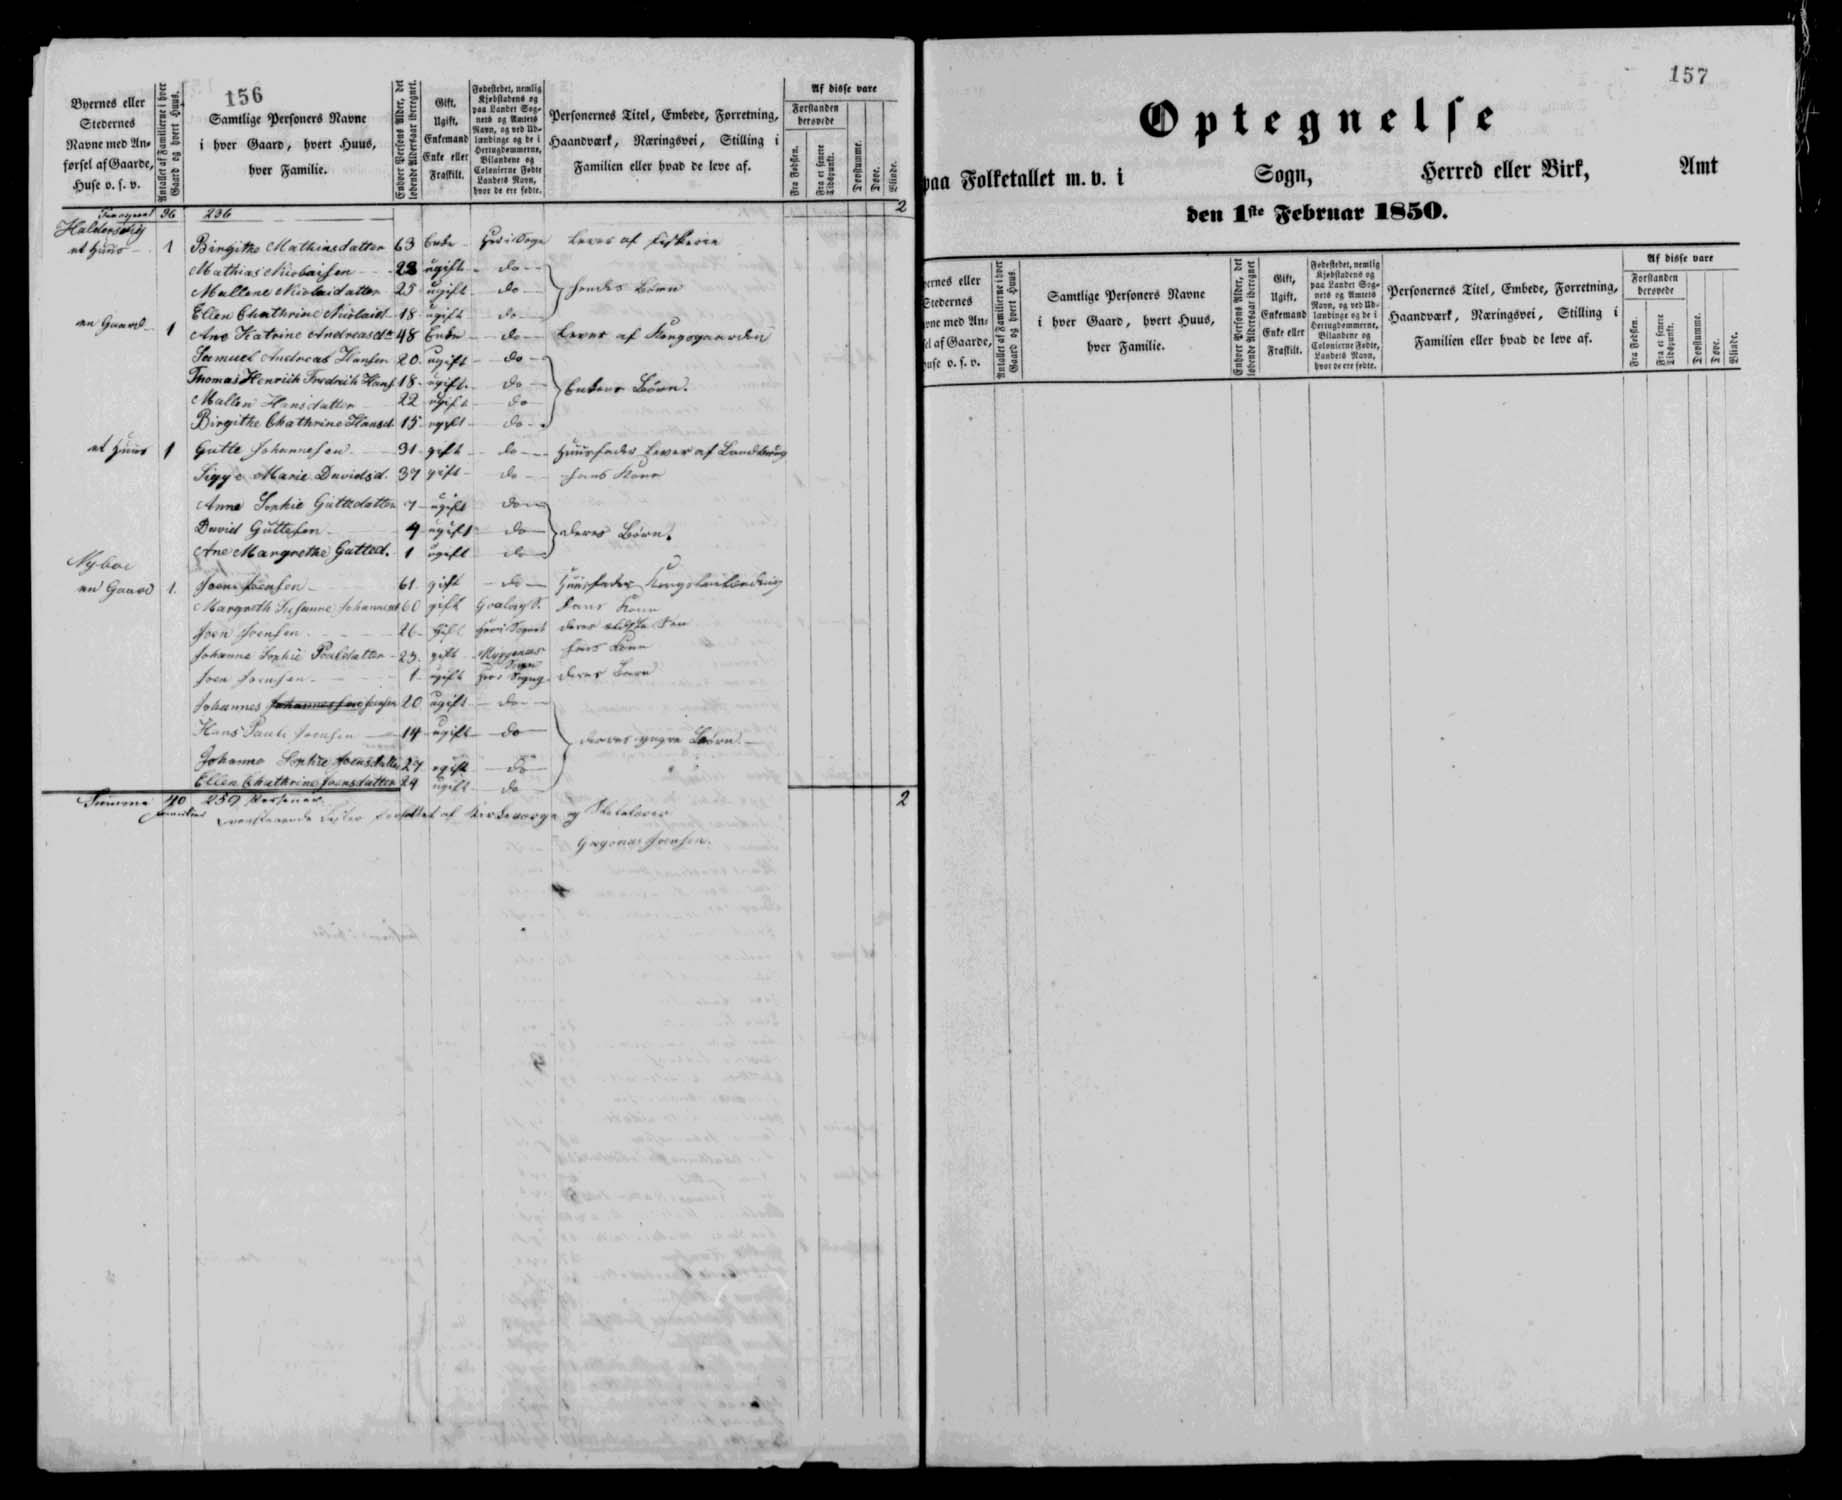 156
Byernes eller Stedernes Navne med Anførsel af Gaarde, Huse o. s. v.
Antallet af Familierne i hver Gaard og hvert Huus.
Samtlige Personers Navne i hver Gaard, hvert Huus, hver Familie.
Enhver Persons Alder, det løbende Aldersaar iberegnet.
Gift, Ugift, Enkemand Enke eller Fraskilt.
Fødestedet, nemlig Kjøbstadens og paa Landet Sognets og Amtets Navn, og ved Udlandinge og de i Hertugdømmerne, Bilandene og Colonierne Fødte Landets Navn, hvor de ere fødte.
Personernes Titel, Embede, Forretning, Haandværk, Næringsvei, Stilling i Familien eller hvad de leve af.
Af disse vare
Forstanden berøvede
Fra Fødslen.
Fra et senere Tidspunkt.
Døvstumme.
Døve.
Blinde.
36 236 2
et Huus 1 Birgithe Mathiasdatter 63 Enke Her i Sogn Lever af Fiskerie
Mathias Nicolaisen 28 ugift do
Mallene Nicolaidatter 25 ugift do hendes Børn
Ellen Chathrine Nicolaid 18 ugift do
en Gaard 1 Ane Katrine Andreasd 48 Enke do Lever af Kongsgaarden
Samuel Andreas Hansen 20 ugift do
Thomas Henrich Fredrich Hans 18 ugift do Enkens Børn
Mallen Hansdatter 22 ugift do
Birgithe Chathrine Hansd 15 ugift do
et Huus 1 Gutte Johannesen 31 gift do Huusfader Lever af
Marie Davidsd. 37 gift do hans Kone
Anna Sophie Guttedatter 7 ugift do
David Guttesen 4 ugift do deres Børn
Ane Margrethe Gutted. 1 ugift do
en Gaard 1. Joen Joensen 61 gift do Huusfader
Margreth Susanne 60 gift hans Kone
Joen Joensen 26 gift Her i Sognet deres ældste Søn
Johanne Sophie Poulsdatter 23 gift Myggenæs Sogn hans Kone
Joen Joensen 1 ugift Her i Sogn deres Barn
Johannes Johannesen Joensen 20 ugift do
Hans Pauli Joensen 14 ugift do deres yngre Børn
Johanna Sophie Joensdatter 27 ugift do
Ellen Chathrine Joensdatter 24 ugift do
Summa 40 Familier 259 Personer 2
af Kirkeværge og Skolelærer
Joensen.
157
Optegnelse
paa Folketallet m. v. i Sogn, Herred eller Birk, Amt
den 1ste Februar 1850.
ernes eller Stedernes vne med An- el af Gaarde, use o. s. v.
Antallet af Familierne i hver Gaard og hvert Huus.
Samtlige Personers Navne i hver Gaard, hvert Huus, hver Familie.
Enhver Persons Alder, det løbende Aldersaar iberegnet
Gift, Ugift, Enkemand Enke eller Fraskilt.
Fødestedet, nemlig Kjøbstadens og paa Landet Sognets og Amtets Navn, og ved Udlandinge og de i Hertugdømmerne, Bilandene og Colonierne Fødte, Landets Navn, hvor de ere fødte.
Personernes Titel, Embede, Forretning, Haandværk, Næringsvei, Stilling i Familien eller hvad de leve af.
Af disse vare
Forstanden berøvede
Fra Fødslen.
Fra et senere Tidspunkt.
Døvstumme.
Døve.
Blinde.